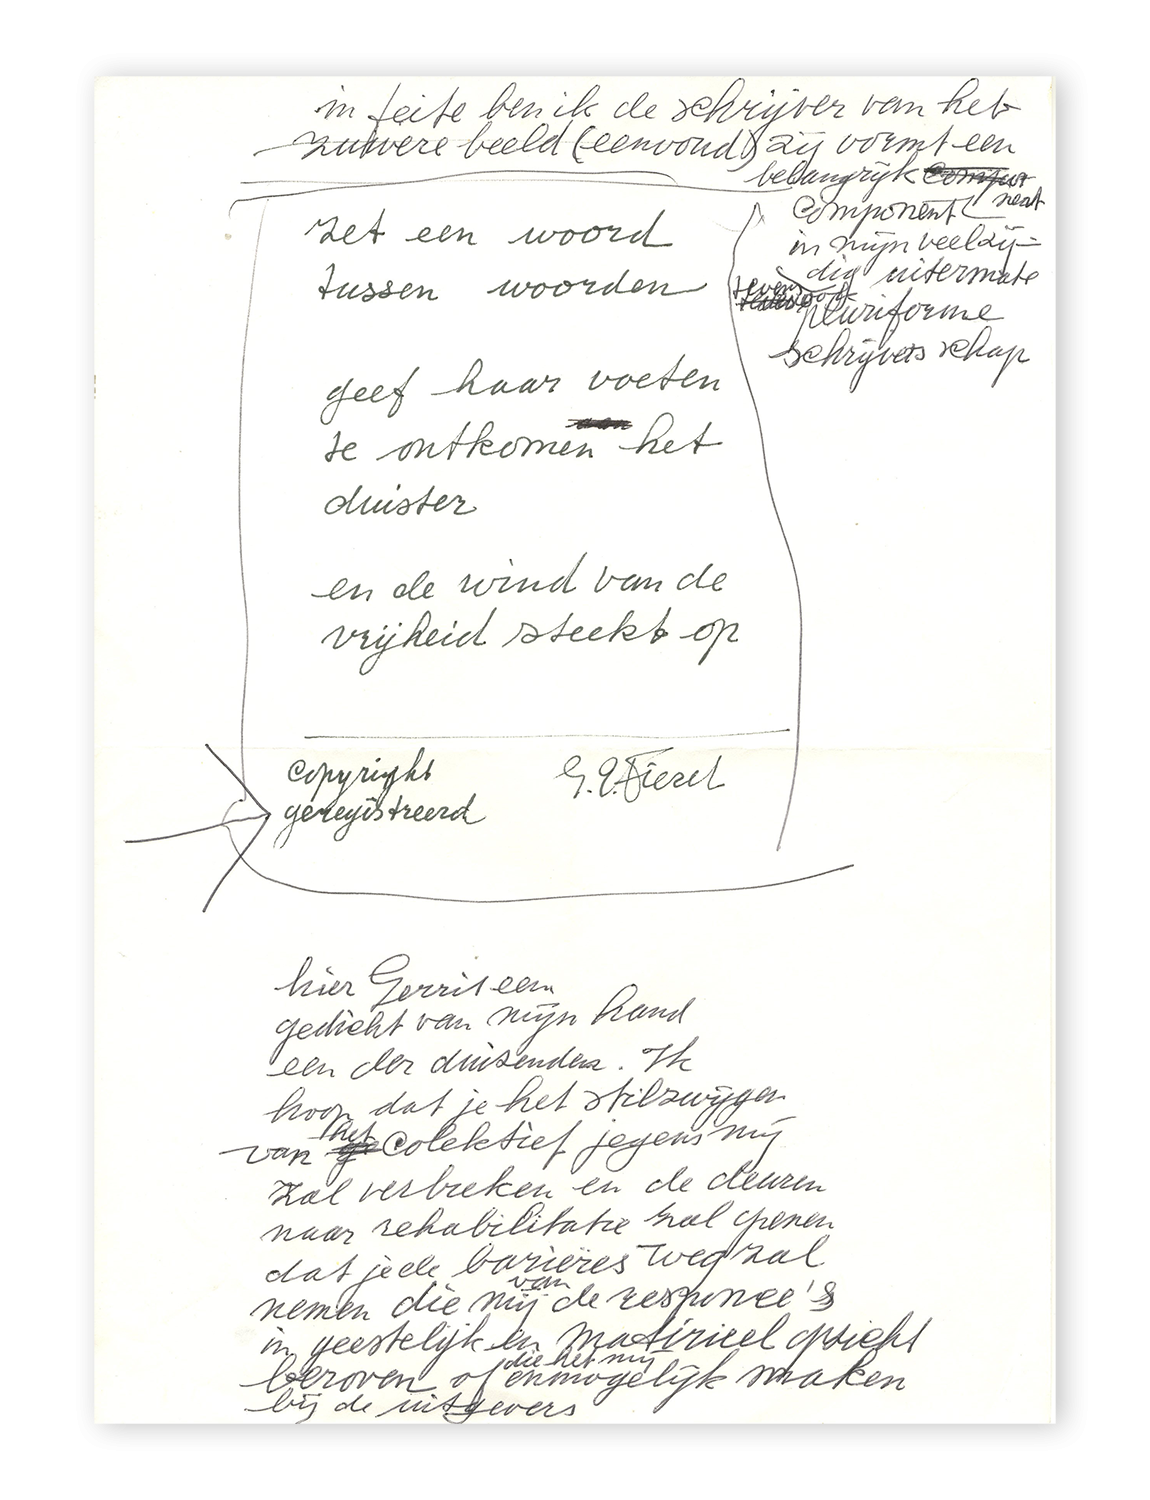 in feite ben ik de schrijver van het
zuivere beeld (eenvoud) zij vormt een
belangrijk
component
in mijn veelzij-
dig uitermate
pluriforme
schrijversschap
zet een woord
tussen woorden
geef haar voeten
te ontkomen het
duister
en de wind van de
vrijheid steekt op
copyright
geregistreerd
hier Gerrit een
gedicht van mijn hand
een der duizenden. Ik
hoop dat je het stilzwijgen
van het Colektief jegens mij
zal verbreken en de deuren
naar rehabilitatie zal openen
dat je de barieres weg zal
nemen die mij van de responce's
in geestelijk en matirieel opzicht
beroven of die het mij onmogelijk maken
bij de uitgevers